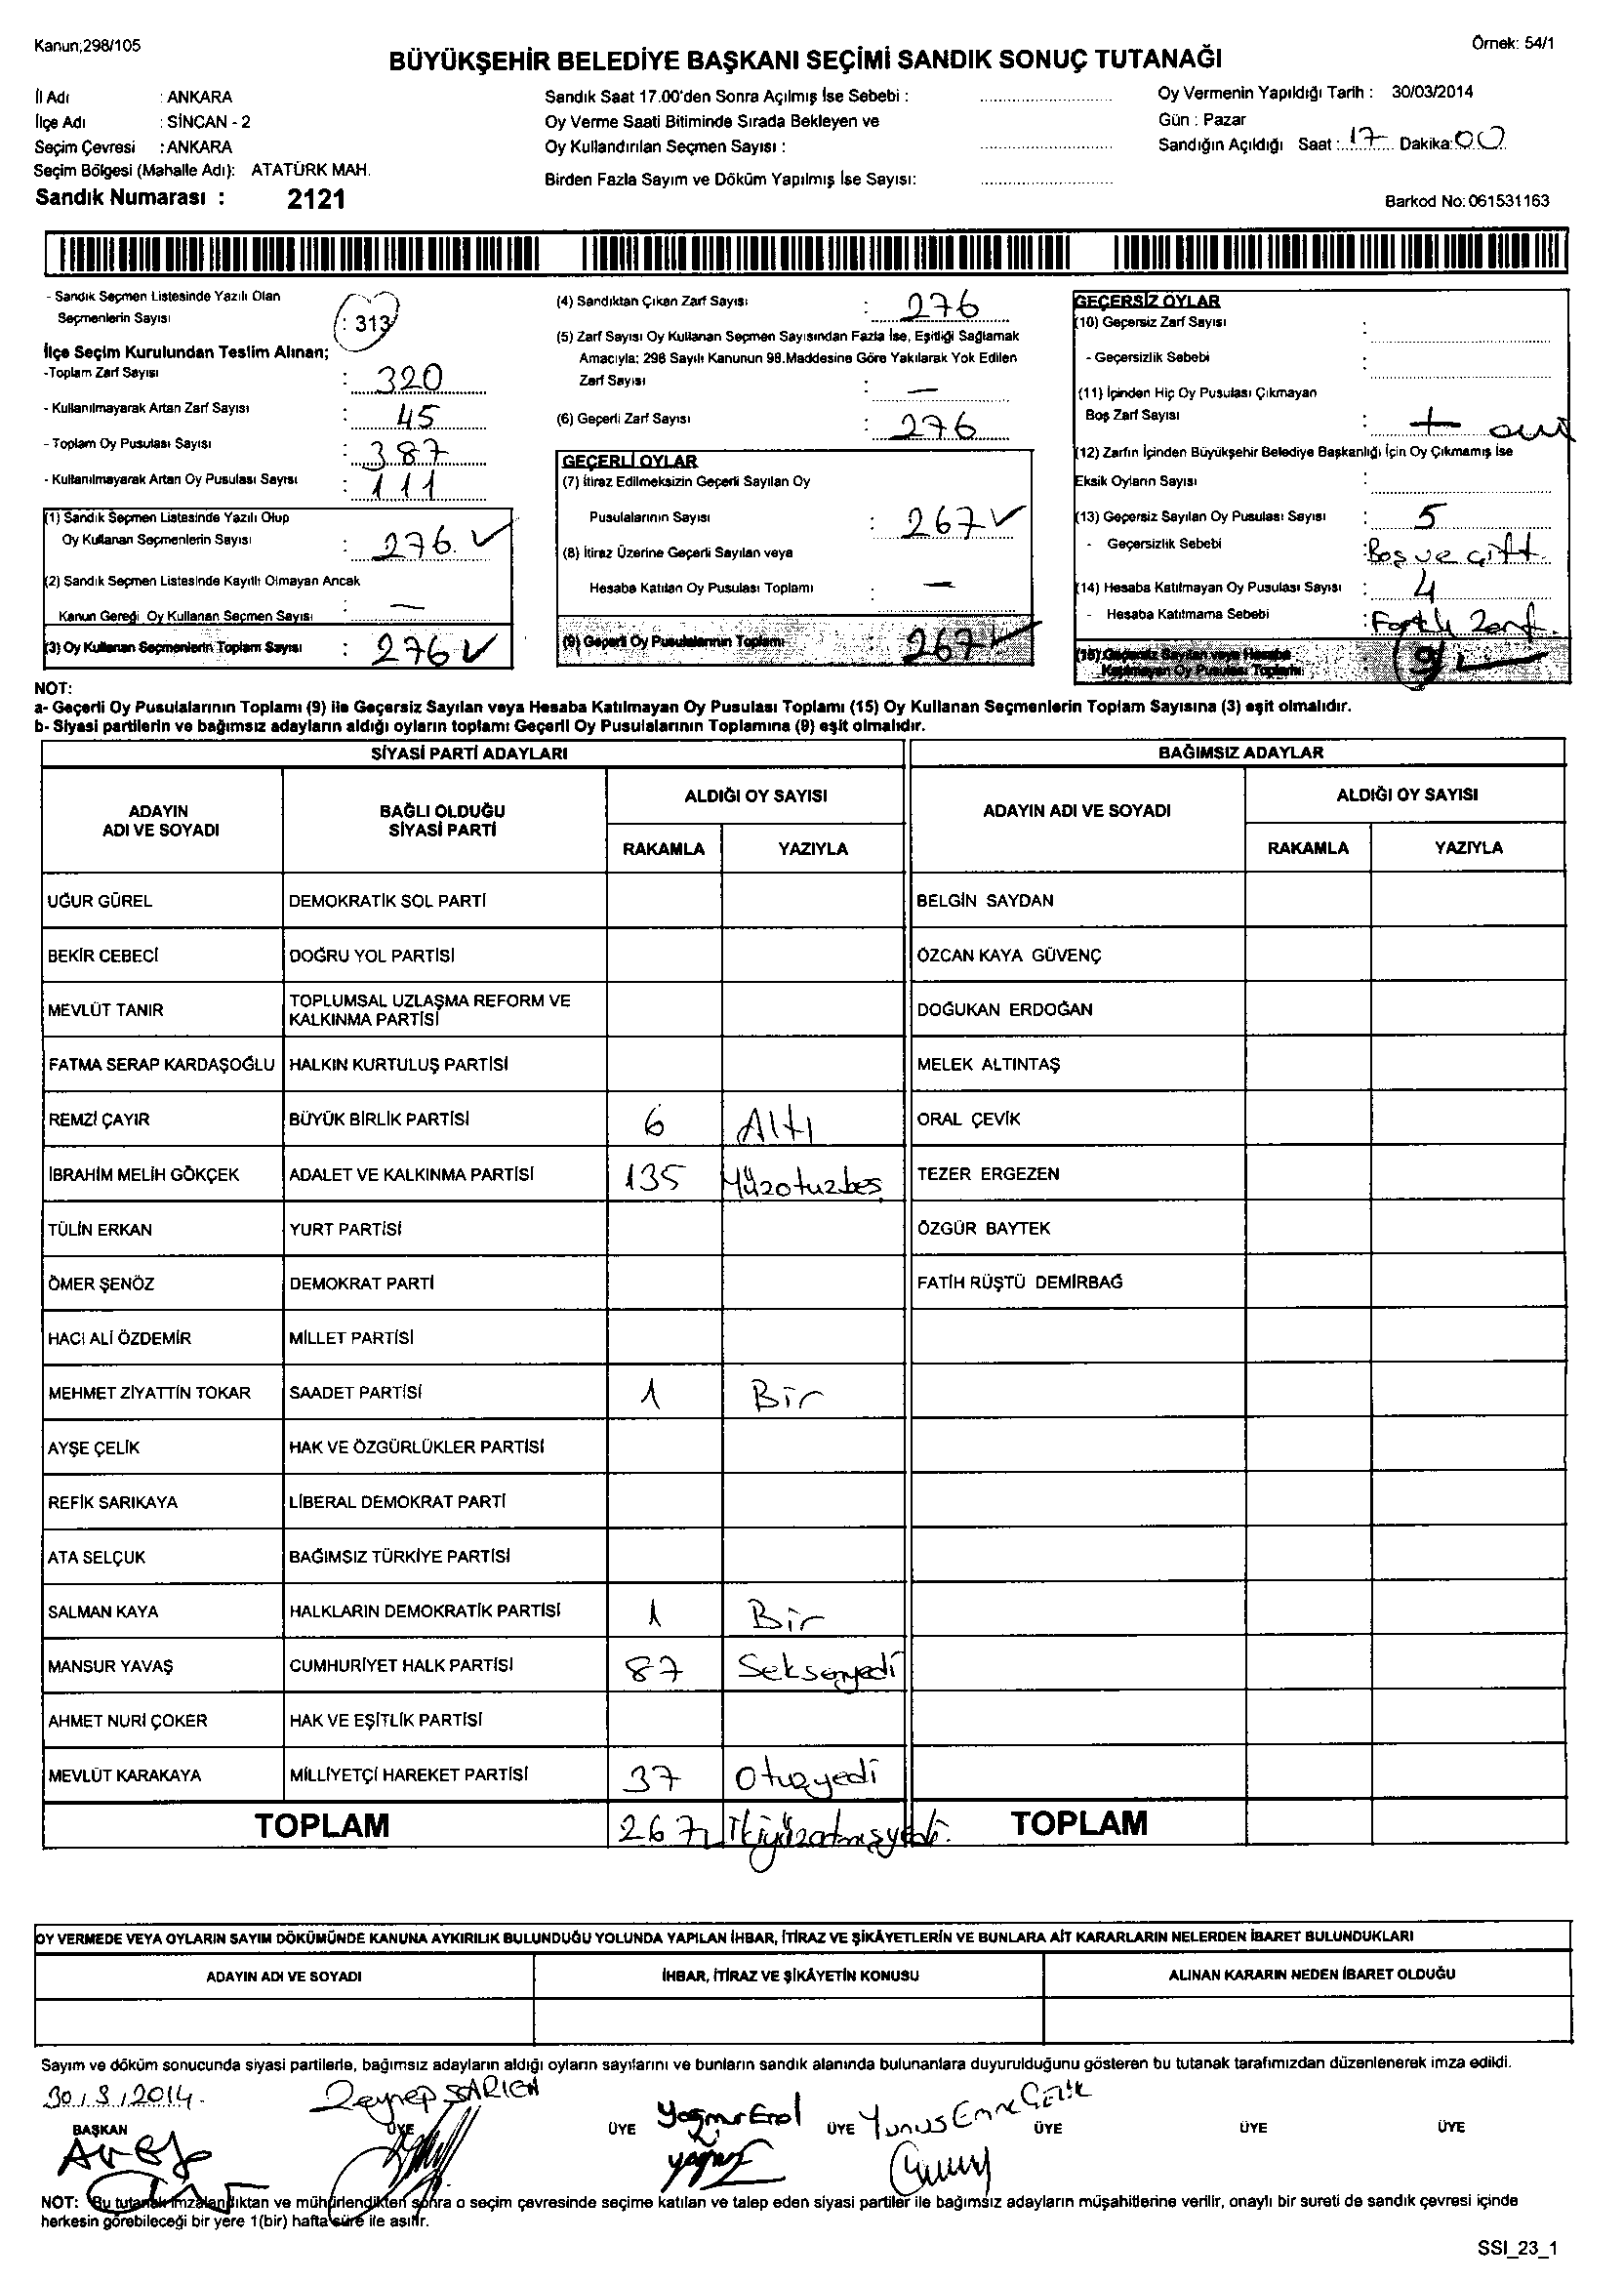 Kanun;298/105
Örnek: 54/1
BÜYÜKŞEHİR BELEDİYE BAŞKANI SEÇİMİ SANDIK SONUÇ TUTANAĞI
İl Adı : ANKARA
İlçe Adı : SİNCAN - 2
Seçim Çevresi : ANKARA
Seçim Bölgesi (Mahalle Adı): ATATÜRK MAH.
Sandık Numarası : 2121
Sandık Saat 17.00'den Sonra Açılmış İse Sebebi :
Oy Verme Saati Bitiminde Sırada Bekleyen ve
Oy Kullandırılan Seçmen Sayısı :
Birden Fazla Sayım ve Döküm Yapılmış İse Sayısı:
Oy Vermenin Yapıldığı Tarih : 30/03/2014
Gün : Pazar
Sandığın Açıldığı Saat : 17 Dakika: 00
Barkod No: 061531163
- Sandık Seçmen Listesinde Yazılı Olan
Seçmenlerin Sayısı : 313
İlçe Seçim Kurulundan Teslim Alınan;
-Toplam Zarf Sayısı : 320
- Kullanılmayarak Artan Zarf Sayısı : 45
- Toplam Oy Pusulası Sayısı : 387
- Kullanılmayarak Artan Oy Pusulası Sayısı : 111
(1) Sandık Seçmen Listesinde Yazılı Olup
Oy Kullanan Seçmenlerin Sayısı : 276
(2) Sandık Seçmen Listesinde Kayıtlı Olmayan Ancak
Kanun Gereği Oy Kullanan Seçmen Sayısı : —
(3) Oy Kullanan Seçmenlerin Toplam Sayısı : 276
(4) Sandıktan Çıkan Zarf Sayısı : 276
(5) Zarf Sayısı Oy Kullanan Seçmen Sayısından Fazla İse, Eşitliği Sağlamak
Amacıyla; 298 Sayılı Kanunun 98.Maddesine Göre Yakılarak Yok Edilen
Zarf Sayısı : —
(6) Geçerli Zarf Sayısı : 276
GEÇERLİ OYLAR
(7) İtiraz Edilmeksizin Geçerli Sayılan Oy
Pusulalarının Sayısı : 267
(8) İtiraz Üzerine Geçerli Sayılan veya
Hesaba Katılan Oy Pusulası Toplamı : —
(9) Geçerli Oy Pusulalarının Toplamı : 267
GEÇERSİZ OYLAR
(10) Geçersiz Zarf Sayısı :
- Geçersizlik Sebebi :
(11) İçinden Hiç Oy Pusulası Çıkmayan
Boş Zarf Sayısı :
(12) Zarfın İçinden Büyükşehir Belediye Başkanlığı İçin Oy Çıkmamış İse
Eksik Oyların Sayısı :
(13) Geçersiz Sayılan Oy Pusulası Sayısı : 5
- Geçersizlik Sebebi : Boş ve çift.
(14) Hesaba Katılmayan Oy Pusulası Sayısı : 4
- Hesaba Katılmama Sebebi : Farklı Zarf.
(15) Geçersiz Sayılan veya Hesaba
Katılmayan Oy Pusulası Toplamı : 9
NOT:
a- Geçerli Oy Pusulalarının Toplamı (9) ile Geçersiz Sayılan veya Hesaba Katılmayan Oy Pusulası Toplamı (15) Oy Kullanan Seçmenlerin Toplam Sayısına (3) eşit olmalıdır.
b- Siyasi partilerin ve bağımsız adayların aldığı oyların toplamı Geçerli Oy Pusulalarının Toplamına (9) eşit olmalıdır.
SİYASİ PARTİ ADAYLARI BAĞIMSIZ ADAYLAR
ADAYIN ADI VE SOYADI BAĞLI OLDUĞU SİYASİ PARTİ ALDIĞI OY SAYISI ADAYIN ADI VE SOYADI ALDIĞI OY SAYISI
RAKAMLA YAZIYLA RAKAMLA YAZIYLA
UĞUR GÜREL DEMOKRATİK SOL PARTİ BELGİN SAYDAN
BEKİR CEBECİ DOĞRU YOL PARTİSİ ÖZCAN KAYA GÜVENÇ
MEVLÜT TANIR TOPLUMSAL UZLAŞMA REFORM VE KALKINMA PARTİSİ DOĞUKAN ERDOĞAN
FATMA SERAP KARDAŞOĞLU HALKIN KURTULUŞ PARTİSİ MELEK ALTINTAŞ
REMZİ ÇAYIR BÜYÜK BİRLİK PARTİSİ 6 Altı ORAL ÇEVİK
İBRAHİM MELİH GÖKÇEK ADALET VE KALKINMA PARTİSİ 135 Yüzotuzbeş TEZER ERGEZEN
TÜLİN ERKAN YURT PARTİSİ ÖZGÜR BAYTEK
ÖMER ŞENÖZ DEMOKRAT PARTİ FATİH RÜŞTÜ DEMİRBAĞ
HACI ALİ ÖZDEMİR MİLLET PARTİSİ
MEHMET ZİYATTİN TOKAR SAADET PARTİSİ 1 Bir
AYŞE ÇELİK HAK VE ÖZGÜRLÜKLER PARTİSİ
REFİK SARIKAYA LİBERAL DEMOKRAT PARTİ
ATA SELÇUK BAĞIMSIZ TÜRKİYE PARTİSİ
SALMAN KAYA HALKLARIN DEMOKRATİK PARTİSİ 1 Bir
MANSUR YAVAŞ CUMHURİYET HALK PARTİSİ 87 Seksenyedi
AHMET NURİ ÇOKER HAK VE EŞİTLİK PARTİSİ
MEVLÜT KARAKAYA MİLLİYETÇİ HAREKET PARTİSİ 37 Otuzyedi
TOPLAM 267 İkiyüzatmışyedi. TOPLAM
OY VERMEDE VEYA OYLARIN SAYIM DÖKÜMÜNDE KANUNA AYKIRILIK BULUNDUĞU YOLUNDA YAPILAN İHBAR, İTİRAZ VE ŞİKÂYETLERİN VE BUNLARA AİT KARARLARIN NELERDEN İBARET BULUNDUKLARI
ADAYIN ADI VE SOYADI İHBAR, İTİRAZ VE ŞİKÂYETİN KONUSU ALINAN KARARIN NEDEN İBARET OLDUĞU
Sayım ve döküm sonucunda siyasi partilerle, bağımsız adayların aldığı oyların sayılarını ve bunların sandık alanında bulunanlara duyurulduğunu gösteren bu tutanak tarafımızdan düzenlenerek imza edildi.
30/3/2014.
Zeynep Yağmur Erol Yunus Emre Çelik
BAŞKAN ÜYE ÜYE ÜYE ÜYE ÜYE ÜYE
NOT: Bu tutanak imzalandıktan ve mühürlendikten sonra o seçim çevresinde seçime katılan ve talep eden siyasi partiler ile bağımsız adayların müşahitlerine verilir, onaylı bir sureti de sandık çevresi içinde
herkesin görebileceği bir yere 1(bir) hafta süre ile asılır.
SSI_23_1